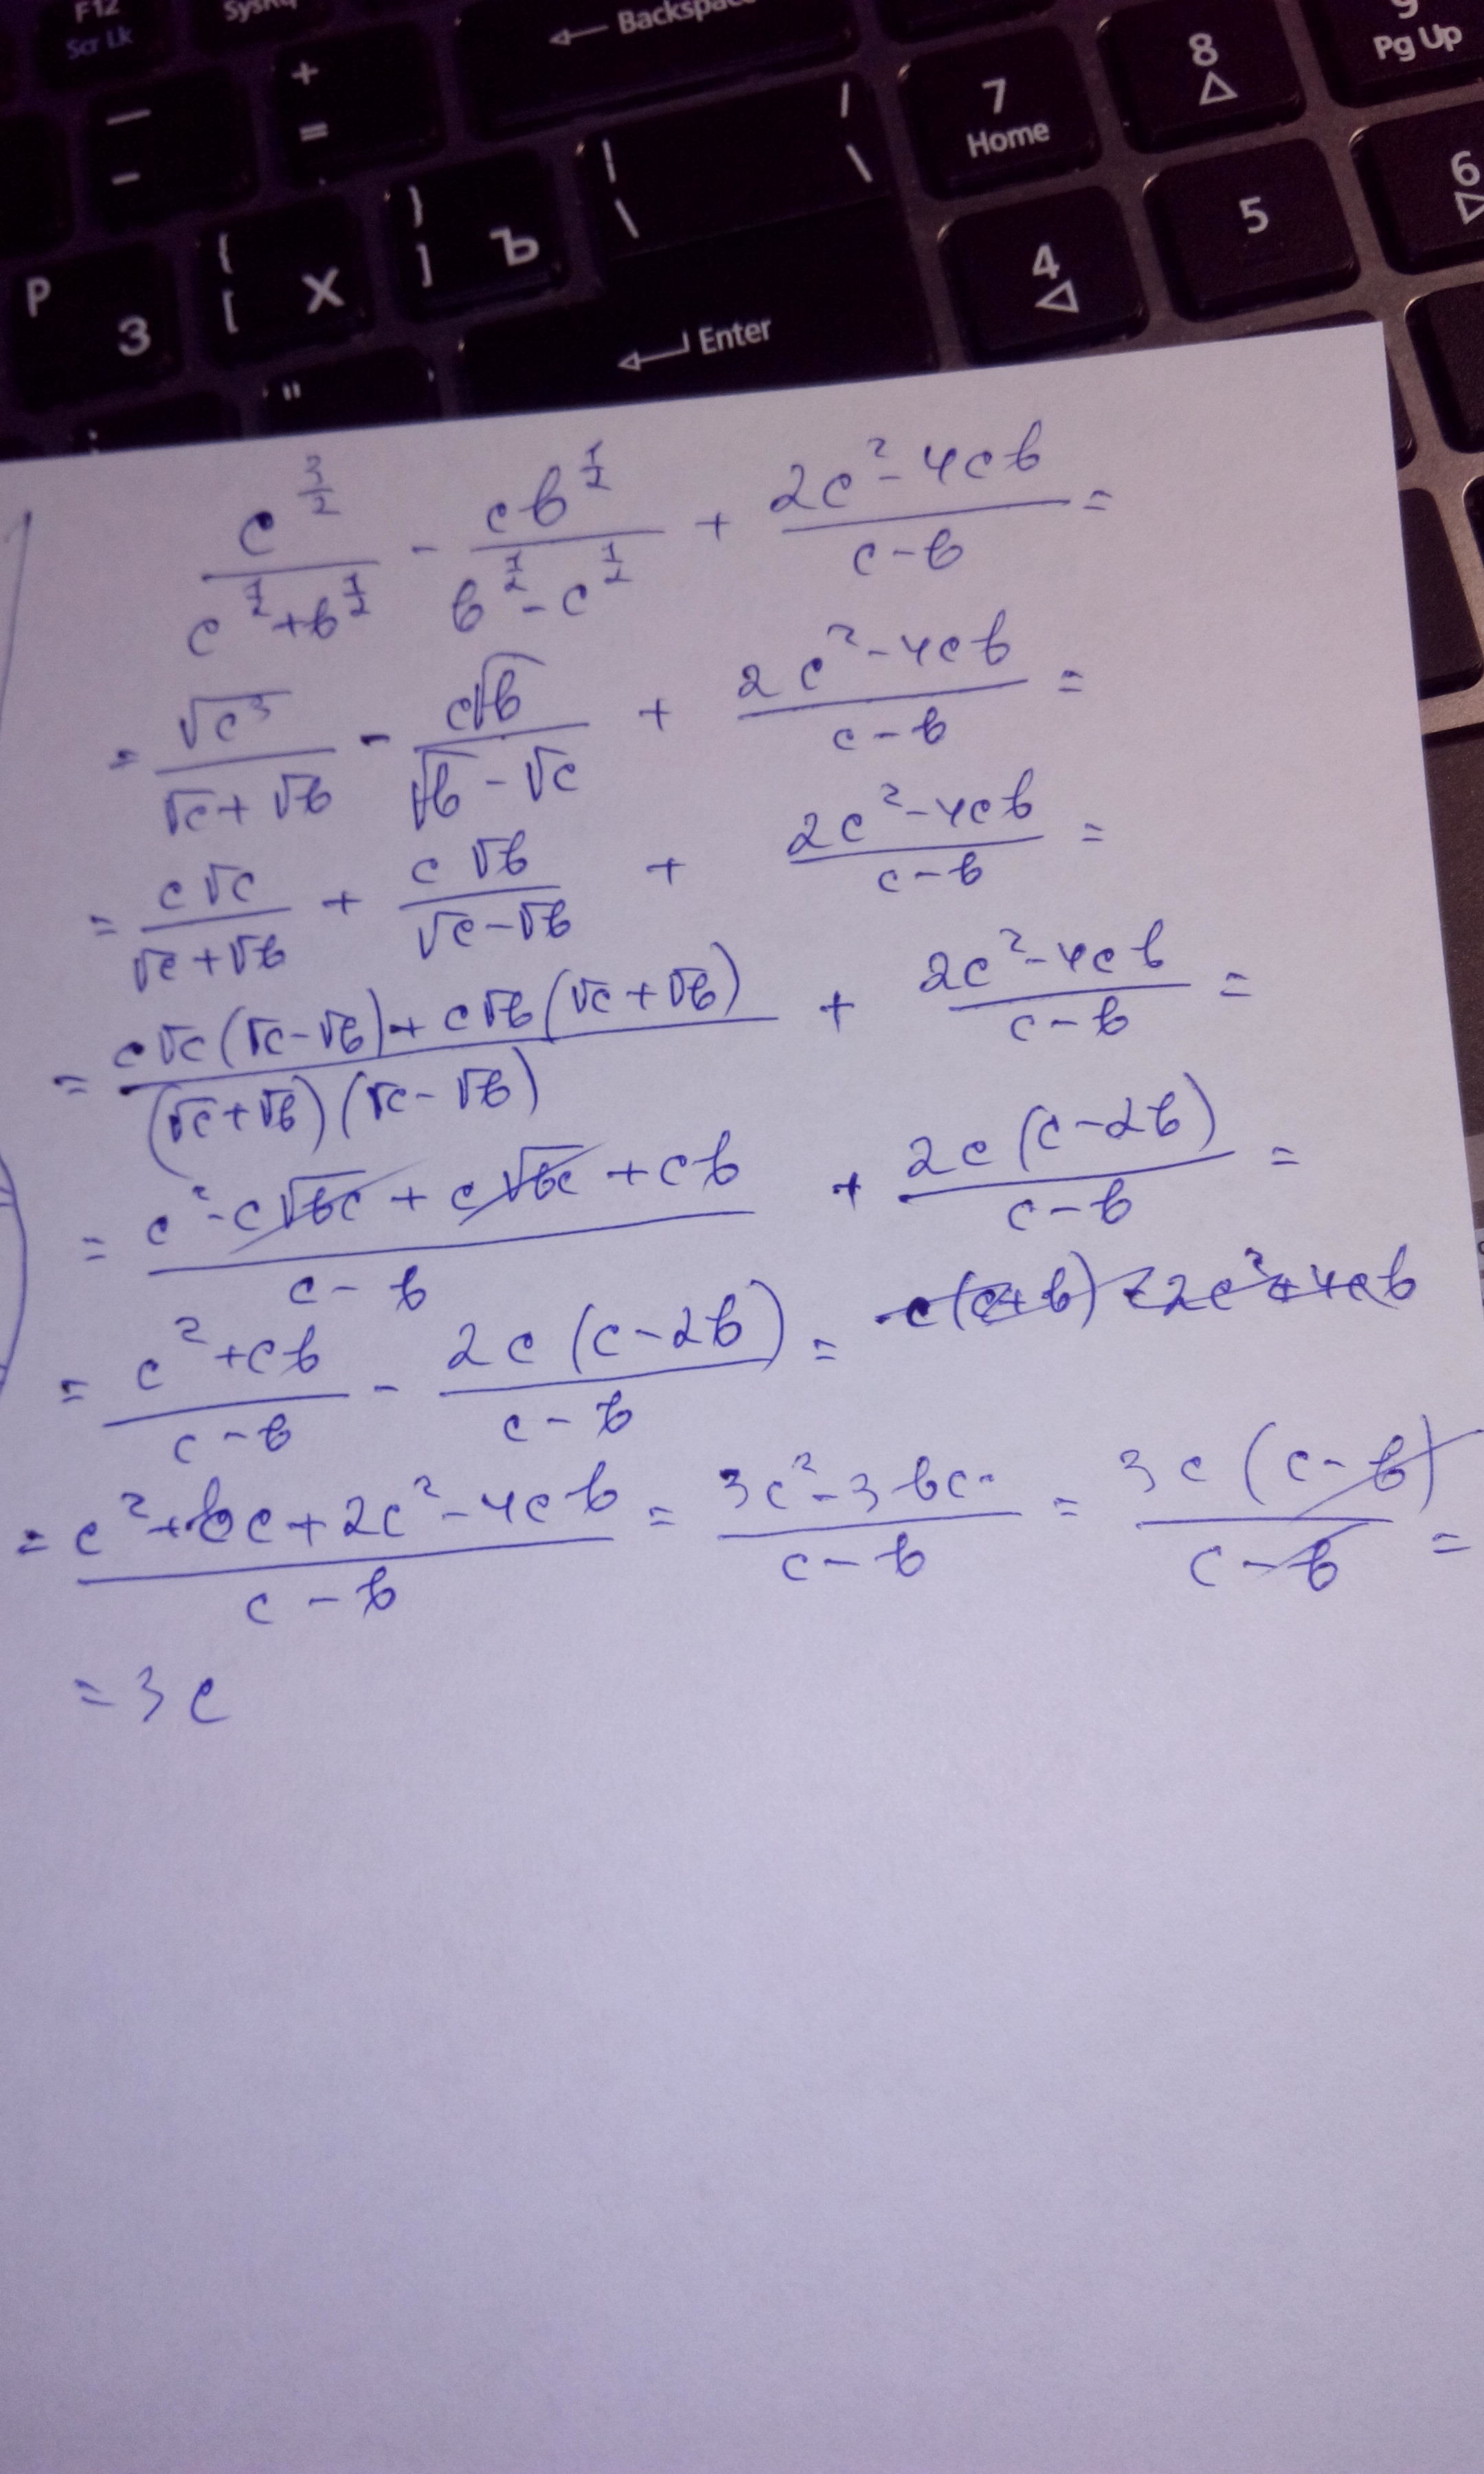 F12 SysRq ← Backspace 9
Scr Lk 8 Pg Up
— + / 7 △
- = | \ Home 6
{ } \ 5 ▷
P [ X ] Ъ 4
З ← Enter ◁
"
c^(3/2) / (c^(1/2) + b^(1/2)) - cb^(1/2) / (b^(1/2) - c^(1/2)) + (2c² - 4cb) / (c - b) =
= √c³ / (√c + √b) - c√b / (√b - √c) + (2c² - 4cb) / (c - b) =
= c√c / (√c + √b) + c√b / (√c - √b) + (2c² - 4cb) / (c - b) =
= (c√c(√c - √b) + c√b(√c + √b)) / ((√c + √b)(√c - √b)) + (2c² - 4cb) / (c - b) =
= (c² - c√bc + c√bc + cb) / (c - b) + 2c(c - 2b) / (c - b) =
= (c² + cb) / (c - b) - 2c(c - 2b) / (c - b) = c(c + b) - 2c² + 4cb
= (c² + bc + 2c² - 4cb) / (c - b) = (3c² - 3bc) / (c - b) = 3c(c - b) / (c - b) =
= 3c